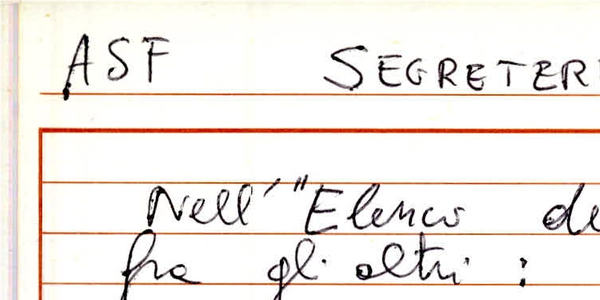 ASF SEGRETER
Nell'"Elenco de
fra gli altri :